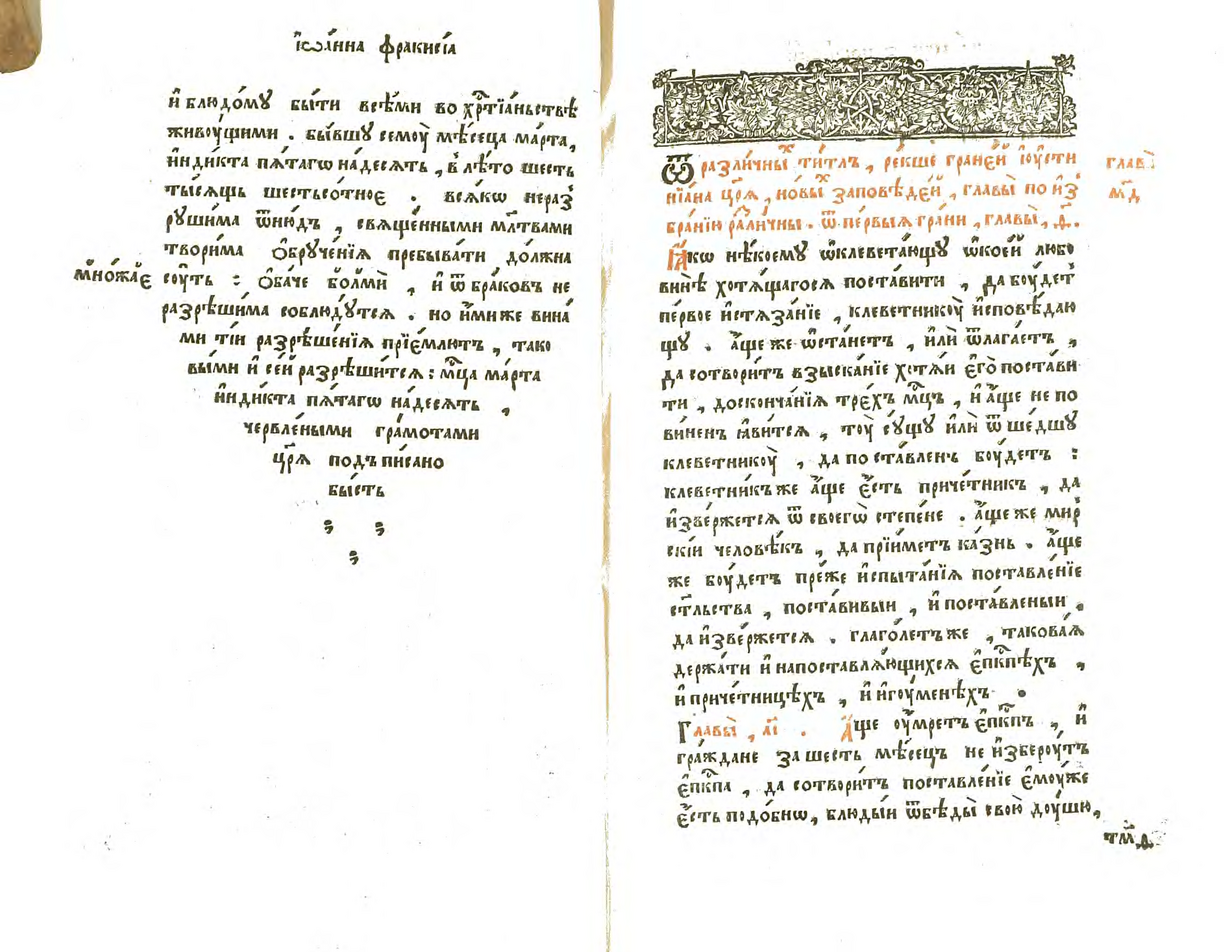 і҆ѡа́нна фракисі́а
и҆ блюдо́мꙋ бы́ти все́ми во хрⷭ҇тїа́ньствѣ
живꙋ́щими . бы́вшꙋ семоу̀ мѣ́сеца ма́рта,
и҆нди́кта пѧ́тагѡ на́десѧть , в̾ лѣ́то шесть
ты́сѧщь шестьсо́тное . всѧ́кѡ нераз̾
рꙋ́шима ѿню́дъ , свѧще́нными мл҃твами
твори́ма ѻ҆брꙋче́нїѧ пребыва́ти до́лжна
мно́жае
соу́ть : ѻ҆ба́че бо́лми , и҆ ѿ бра́ковъ не
разрѣ́шима соблюдꙋ́тсѧ . но и҆́миже вина́
ми ті́и разрѣше́нїѧ прїе́млютъ , тако
вы́ми и҆ се́й разрѣши́тсѧ : мц҃а ма́рта
и҆нди́кта пѧ́тагѡ на́десѧть ,
червле́ными гра́мотами
цр҃ѧ подъпи́сано
бы́сть
Ѿ разли́чныⷯ ти́тлъ , ре́кше гране́й і҆оу́сти
нїа́на цр҃ѧ , но́выⷯ за́повѣдей , главы̀ по и҆з̾
бра́нїю разли́чны . ѿ пе́рвыѧ гра́ни , главы̀ , д҃ .
глав̾
м҃д
Ꙗ҆́кѡ нѣ́коемꙋ ѡ҆клевета́ющꙋ ѡ҆ко́ей лю́бо
винѣ̀ хотѧ́щагосѧ поста́вити , да бꙋ́детъ
пе́рвое и҆стѧза́нїе , клеветникоу̀ и҆сповѣ́даю
щꙋ . а҆́ще же ѡ҆ста́нетъ , и҆лѝ ѿлага́етъ ,
да сотвори́тъ взыска́нїе хотѧ́й є҆го̀ поста́ви
ти , до сконча́нїѧ тре́хъ мц҃ъ , и҆ а҆́ще не по
ви́ненъ ꙗ҆ви́тсѧ , тоу̀ сꙋ́щꙋ и҆лѝ ѿше́дшꙋ
клеветникоу̀ , да поста́вленъ бꙋ́детъ :
клевѣтни́къ же а҆́ще є҆́сть приче́тникъ , да
и҆зве́ржетсѧ ѿ своегѡ̀ степе́не . а҆́ще же мир̾
скі́и человѣ́къ , да прїи́метъ ка́знь . а҆́ще
же бꙋ́детъ пре́же и҆спыта́нїѧ поставле́нїе
ст҃льства , поста́вивыи , и҆ поста́вленыи ,
да и҆зве́ржетсѧ . глаго́летъ же , такова́ѧ
держа́ти и҆ на поставлѧ́ющихсѧ є҆пⷭ҇кпѣхъ ,
и҆ приче́тницѣхъ , и҆ и҆гоу́менѣхъ .
Главы̀ , а҃і . А҆́ще оу҆́мретъ є҆пⷭ҇кпъ , и҆
гра́ждане за ше́сть мѣ́сецъ не и҆зберꙋ́тъ
є҆пⷭ҇кпа , да сотвори́тъ поставле́нїе є҆моу́же
є҆́сть подо́бнѡ , блюды́и ѿ бѣды̀ свою̀ доу́шю,
тм҃д.